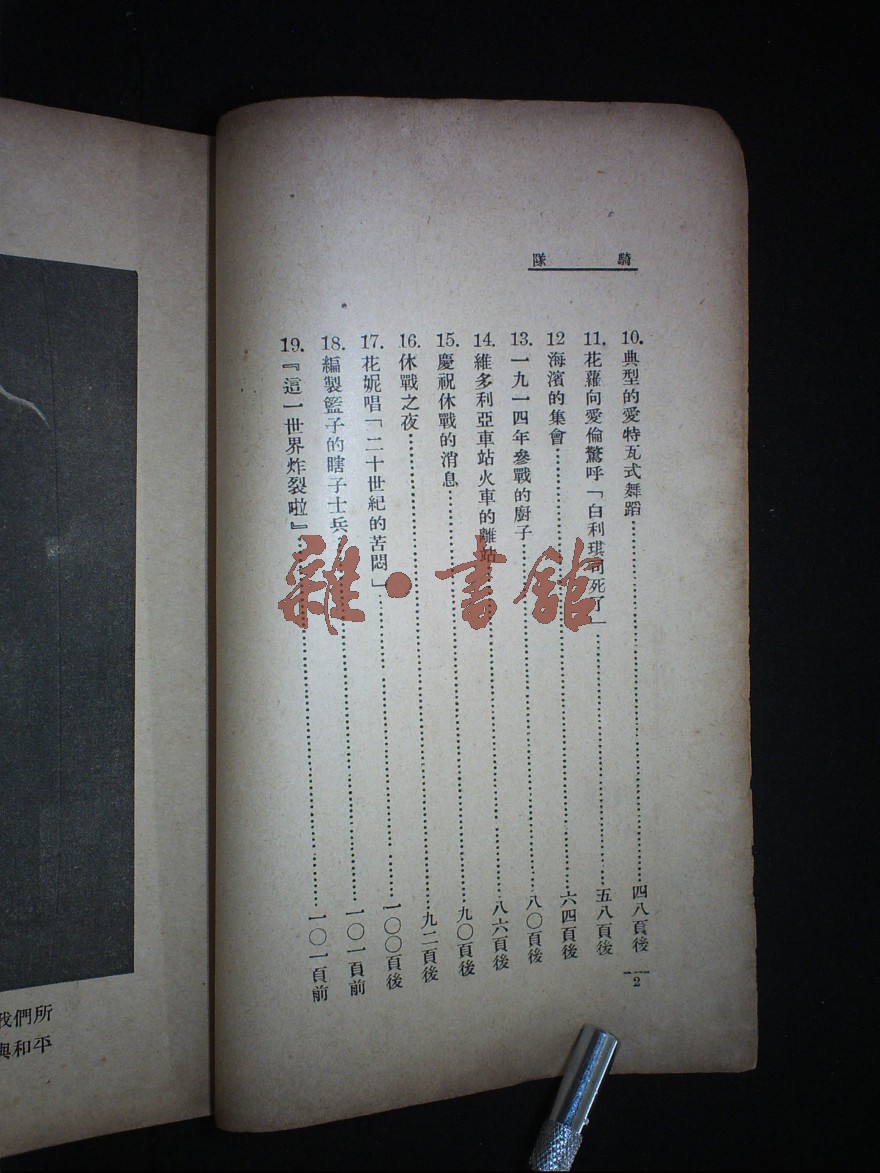 騎隊
10.典型的愛特瓦式舞蹈……四八頁後
11.花蘿向愛倫驚呼「白利琪司死了」……五八頁後
12海濱的集會……六四頁後
13.一九一四年參戰的廚子……八〇頁後
14.維多利亞車站火車的離站……八六頁後
15.慶祝休戰的消息……九〇頁後
16.休戰之夜……九二頁後
17.花妮唱「二十世紀的苦悶」……一〇〇頁後
18.編製籃子的瞎子士兵……一〇一頁前
19.『這一世界炸裂啦』……一〇一頁前
2
我們所
與和平
雜·書館